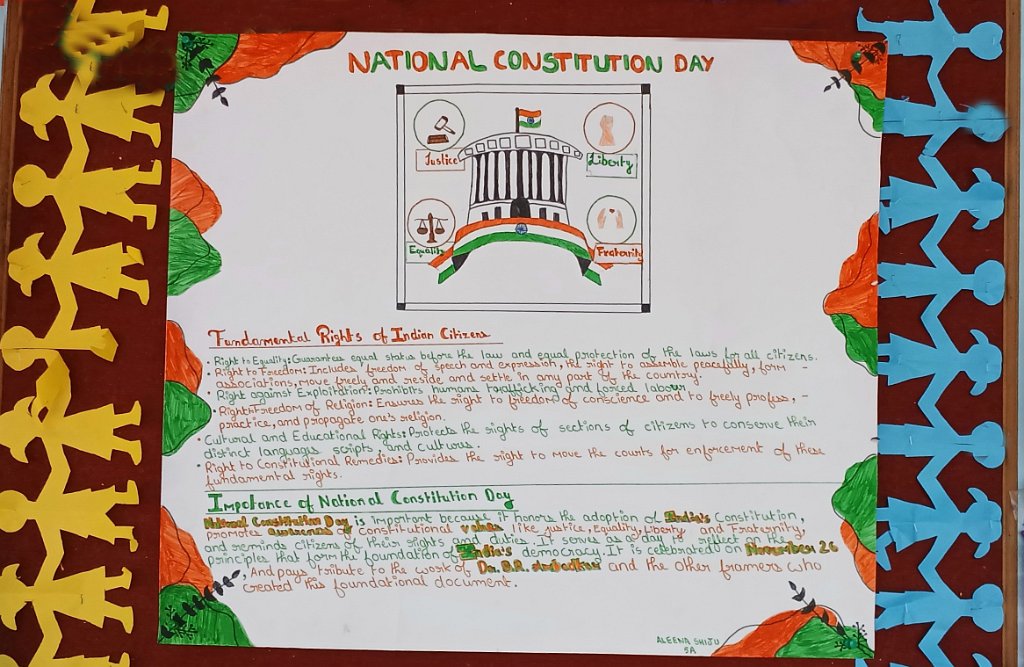 NATIONAL CONSTITUTION DAY
Justice
Liberty
Equality
Fraternity
Fundamental Rights of Indian Citizens
• Right to Equality: Guarantees equal status before the law and equal protection of the laws for all citizens.
• Right to Freedom: Includes freedom of speech and expression, the right to assemble peacefully, form -
associations, move freely and reside and settle in any part of the country.
• Right against Exploitation: Prohibits human trafficking and forced labour
• Right Freedom of Religion: Ensures the right to freedom of conscience and to freely profess, -
practice, and propagate one's religion.
• Cultural and Educational Rights: Protects the rights of sections of citizens to conserve their
distinct languages, scripts and cultures.
• Right to Constitutional Remedies: Provides the right to move the courts for enforcement of these
fundamental rights.
Impotance of National Constitution Day
National Constitution Day is important because it honors the adoption of India's Constitution,
promotes awareness of constitutional values like justice, Equality, Liberty and Fraternity,
and reminds citizens of their rights and duties. It serves as a day to reflect on the
principles that form the foundation of India's democracy. It is celebrated on November 26
, And pays tribute to the work of Dr. B.R. Ambedkar and the other framers who
created this foundational document.
ALEENA SHIJU
5A